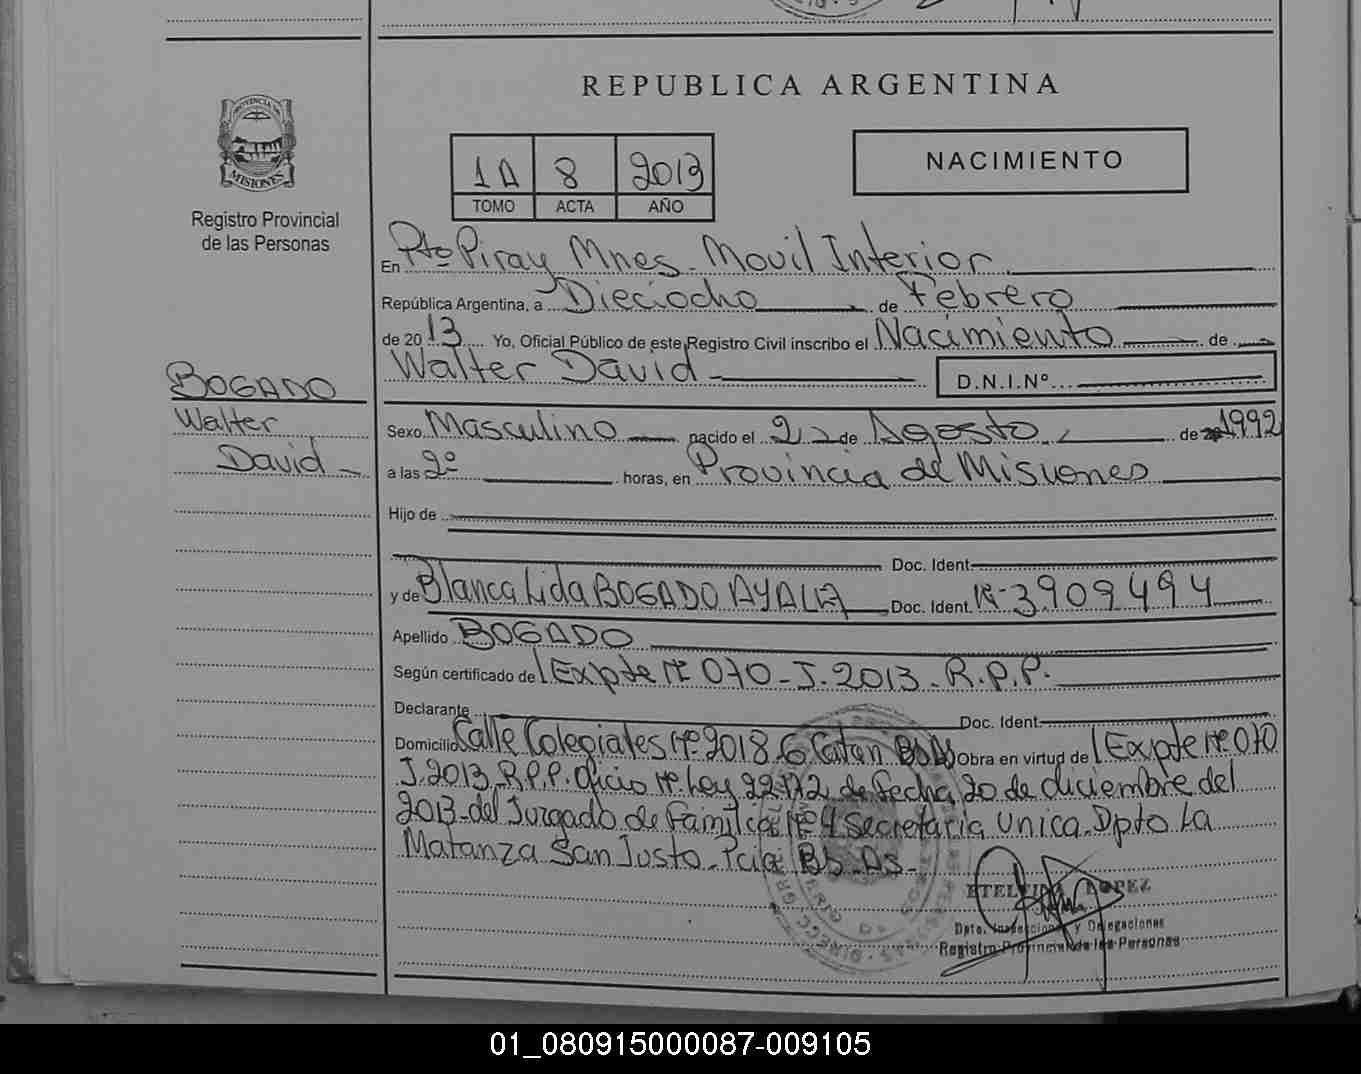 REPUBLICA ARGENTINA
PROVINCIA DE
MISIONES
Registro Provincial
de las Personas
1A 8 2013
TOMO ACTA AÑO
NACIMIENTO
En Pto Piray Mnes. Movil Interior
República Argentina, a Dieciocho de Febrero
de 2013 Yo, Oficial Público de este Registro Civil inscribo el Nacimiento de
Walter David D.N.I.Nº
BOGADO
Walter
David
Sexo Masculino nacido el 22 de Agosto de 1992
a las 2º horas, en Provincia de Misiones
Hijo de
Doc. Ident.
y de Blanca Lida BOGADO AYALA Doc. Ident. Nº 3909494
Apellido BOGADO
Según certificado de Expte Nº 070-J-2013-R.P.P.
Declarante Doc. Ident.
Domicilio Calle Colegiales Nº 2018 G Catan Bs As Obra en virtud de Expte Nº 070
J.2013.R.P.P. Oficio Nº Ley 22172 de fecha 20 de diciembre del
2013-del Juzgado de Familia Nº 4 Secretaria Unica. Dpto La
Matanza San Justo-Pcia Bs. As-
ETELVINA LOPEZ
Dpto. Inspecciones y Delegaciones
Registro Provincial de las Personas
01_080915000087-009105